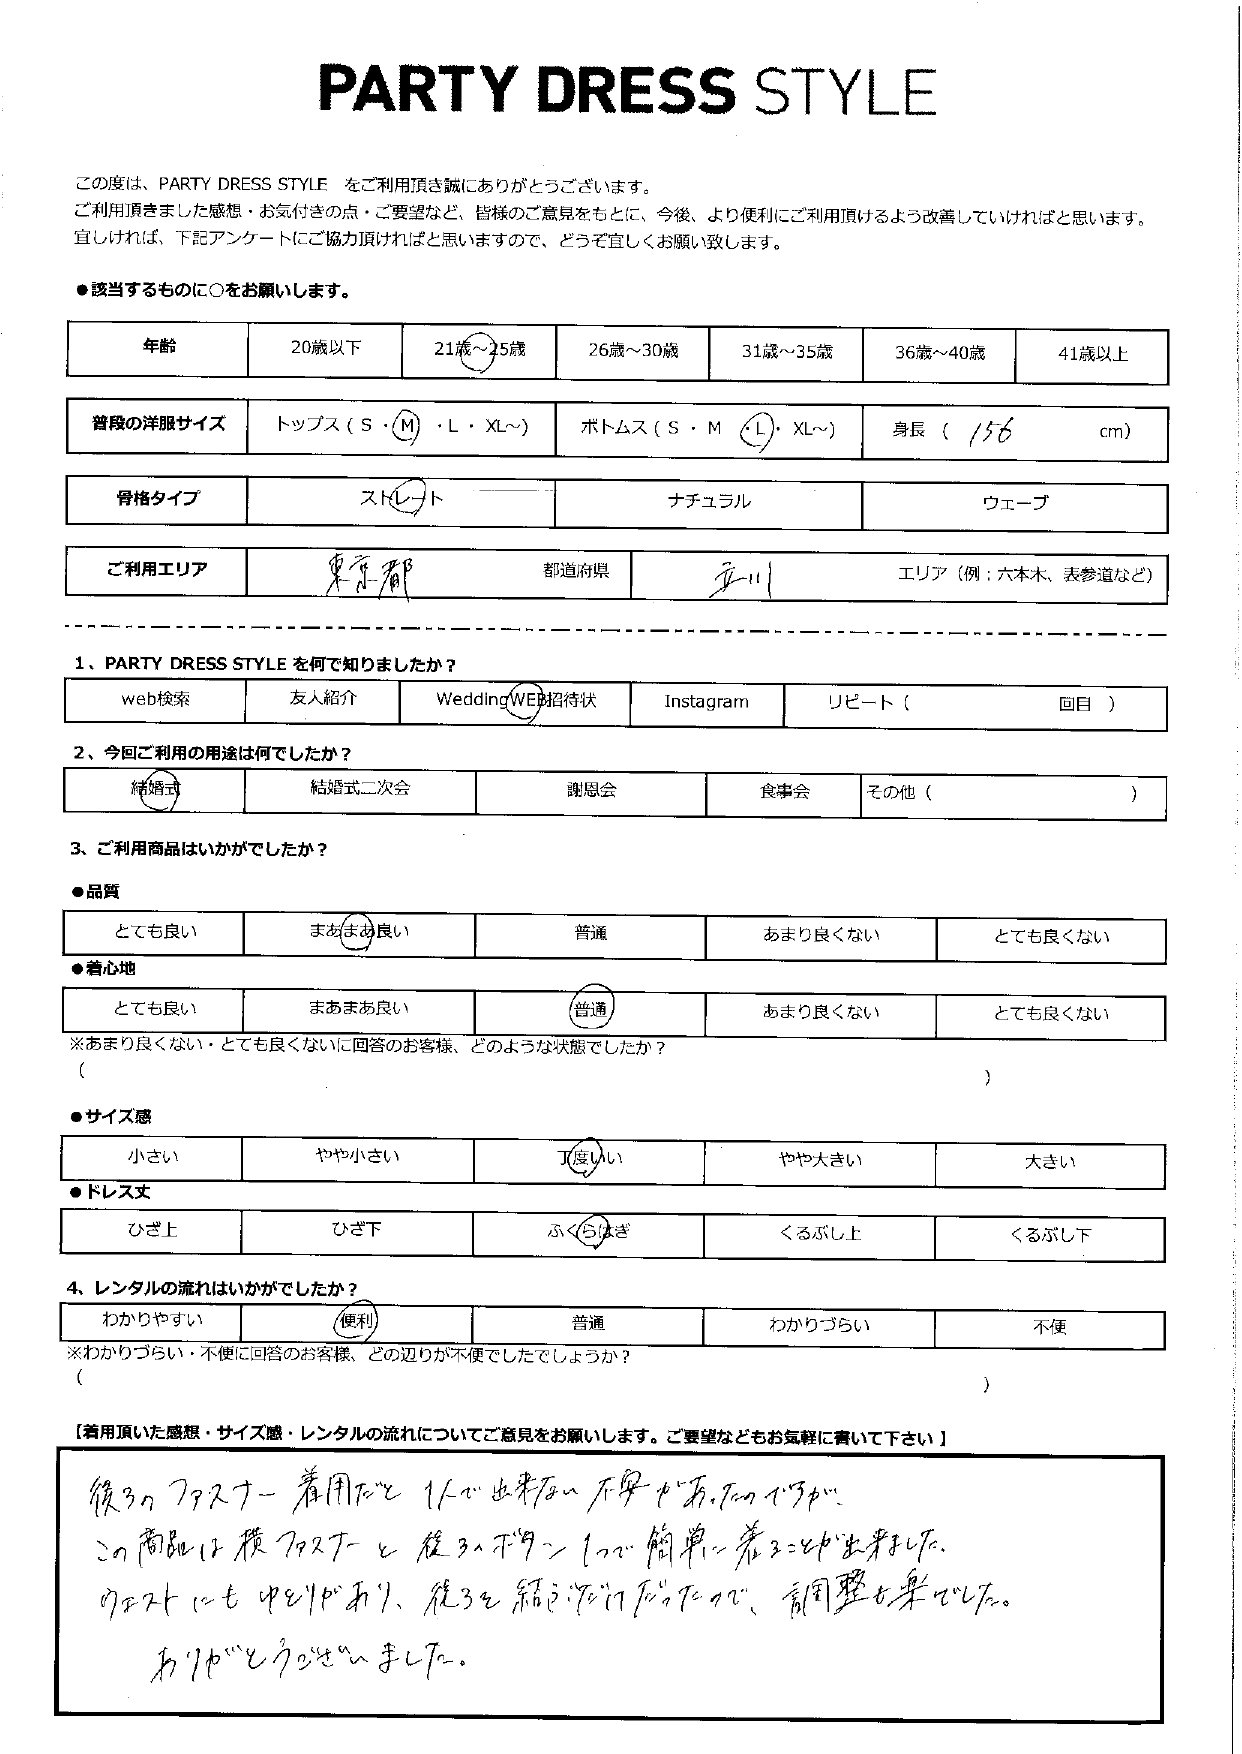 PARTY DRESS STYLE
この度は、PARTY DRESS STYLE をご利用頂き誠にありがとうございます。
ご利用頂きました感想・お気付きの点・ご要望など、皆様のご意見をもとに、今後、より便利にご利用頂けるよう改善していければと思います。
宜しければ、下記アンケートにご協力頂ければと思いますので、どうぞ宜しくお願い致します。
●該当するものに○をお願いします。
年齢 20歳以下 21歳～25歳 26歳～30歳 31歳～35歳 36歳～40歳 41歳以上
普段の洋服サイズ トップス（ S ・ M ・ L ・ XL～） ボトムス（ S ・ M ・ L ・ XL～） 身長 （ 156 cm）
骨格タイプ ストレート ナチュラル ウェーブ
ご利用エリア 東京都 都道府県 立川 エリア（例：六本木、表参道など）
1、PARTY DRESS STYLE を何で知りましたか？
web検索 友人紹介 WeddingWEB招待状 Instagram リピート（ 回目 ）
2、今回ご利用の用途は何でしたか？
結婚式 結婚式二次会 謝恩会 食事会 その他（ ）
3、ご利用商品はいかがでしたか？
●品質
とても良い まあまあ良い 普通 あまり良くない とても良くない
●着心地
とても良い まあまあ良い 普通 あまり良くない とても良くない
※あまり良くない・とても良くないに回答のお客様、どのような状態でしたか？
（ ）
●サイズ感
小さい やや小さい 丁度いい やや大きい 大きい
●ドレス丈
ひざ上 ひざ下 ふくらはぎ くるぶし上 くるぶし下
4、レンタルの流れはいかがでしたか？
わかりやすい 便利 普通 わかりづらい 不便
※わかりづらい・不便に回答のお客様、どの辺りが不便でしたでしょうか？
（ ）
【着用頂いた感想・サイズ感・レンタルの流れについてご意見をお願いします。ご要望などもお気軽に書いて下さい】
後ろのファスナー着用だと1人で出来ない不安があったのですが、
この商品は横ファスナーと後ろへボタン1つで簡単に着ることが出来ました。
ウエストにもゆとりがあり、後ろを結うだけだったので、調整も楽でした。
ありがとうございました。